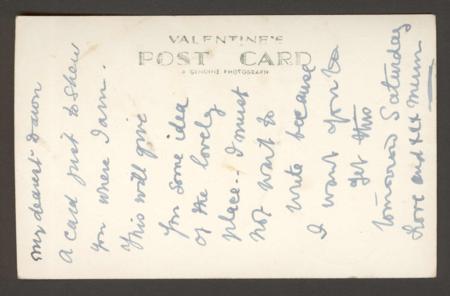 VALENTINE'S
POST CARD
A GENUINE PHOTOGRAPH
My dearest Dawn
a card just to shew
you where I am.
This will give
you some idea
of the lovely
place. I must
not wait to
write because
I want you to
get this
tomorrow Saturday
Love and xxx Mum